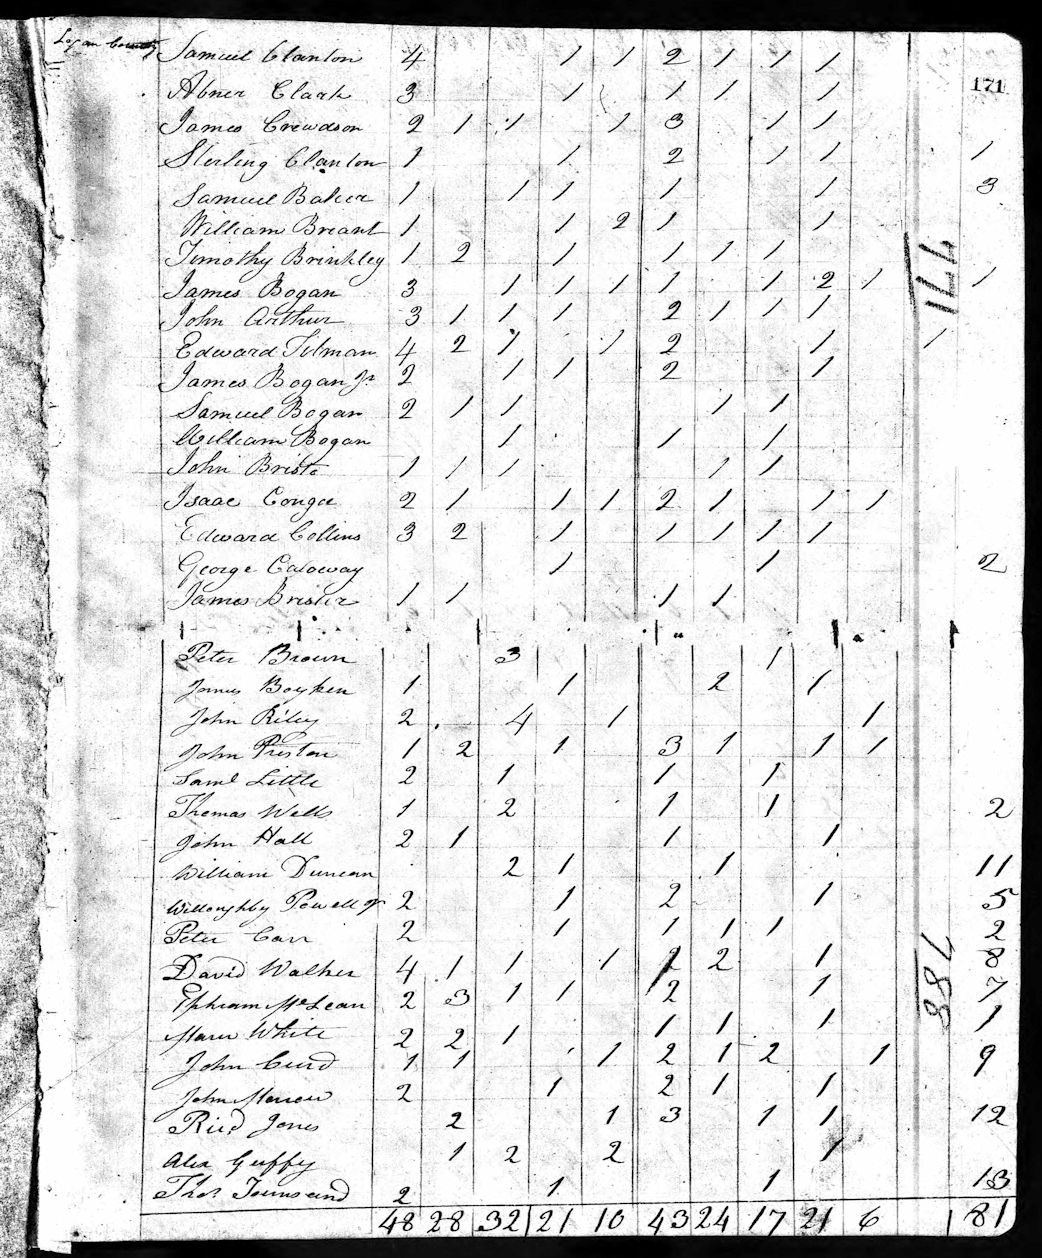 Logan County
171
Samuel Clanton 4 1 1 2 1 1 1
Abner Clark 3 1 1 1 1
James Crewdson 2 1 1 1 3 1 1
Sterling Clanton 1 1 2 1 1 1
Samuel Baker 1 1 1 1 1 3
William Breant 1 1 2 1 1
Timothy Brinkley 1 2 1 1 1 1
James Bogan 3 1 1 1 1 1 2 1 1
John Arthur 3 1 1 1 2 1 1 1
Edward Tilman 4 2 1 1 2 1 1
James Bogan Jr 2 1 1 2 1
Samuel Bogan 2 1 1 1 1
William Bogan 1 1 1
John Bristo 1 1 1 1 1
Isaac Conger 2 1 1 1 2 1 1 1
Edward Collins 3 2 1 1 1 1 1
George Caloway 1 1 2
James Brister 1 1 1 1
771
Peter Brown 3 1
James Boyken 1 1 2 1
John Riley 2 4 1 1
John Preston 1 2 1 3 1 1 1
Saml Little 2 1 1 1
Thomas Wells 1 2 1 1 2
John Hall 2 1 1 1
William Duncan 2 1 1 11
Willoughby Powell Jr 2 1 2 1 5
Peter Carr 2 1 1 1 1 2
David Walker 4 1 1 1 2 2 1 8
Ephraim McLean 2 3 1 1 2 1 7
White 2 2 1 1 1 1 1
John Curd 1 1 1 2 1 2 1 9
John Morrow 2 1 2 1 1
Ried Jones 2 1 3 1 1 12
Alex Guffy 1 2 2 1
Thos Townsend 2 1 1 13
788
48 28 32 21 10 43 24 17 21 6 1 81